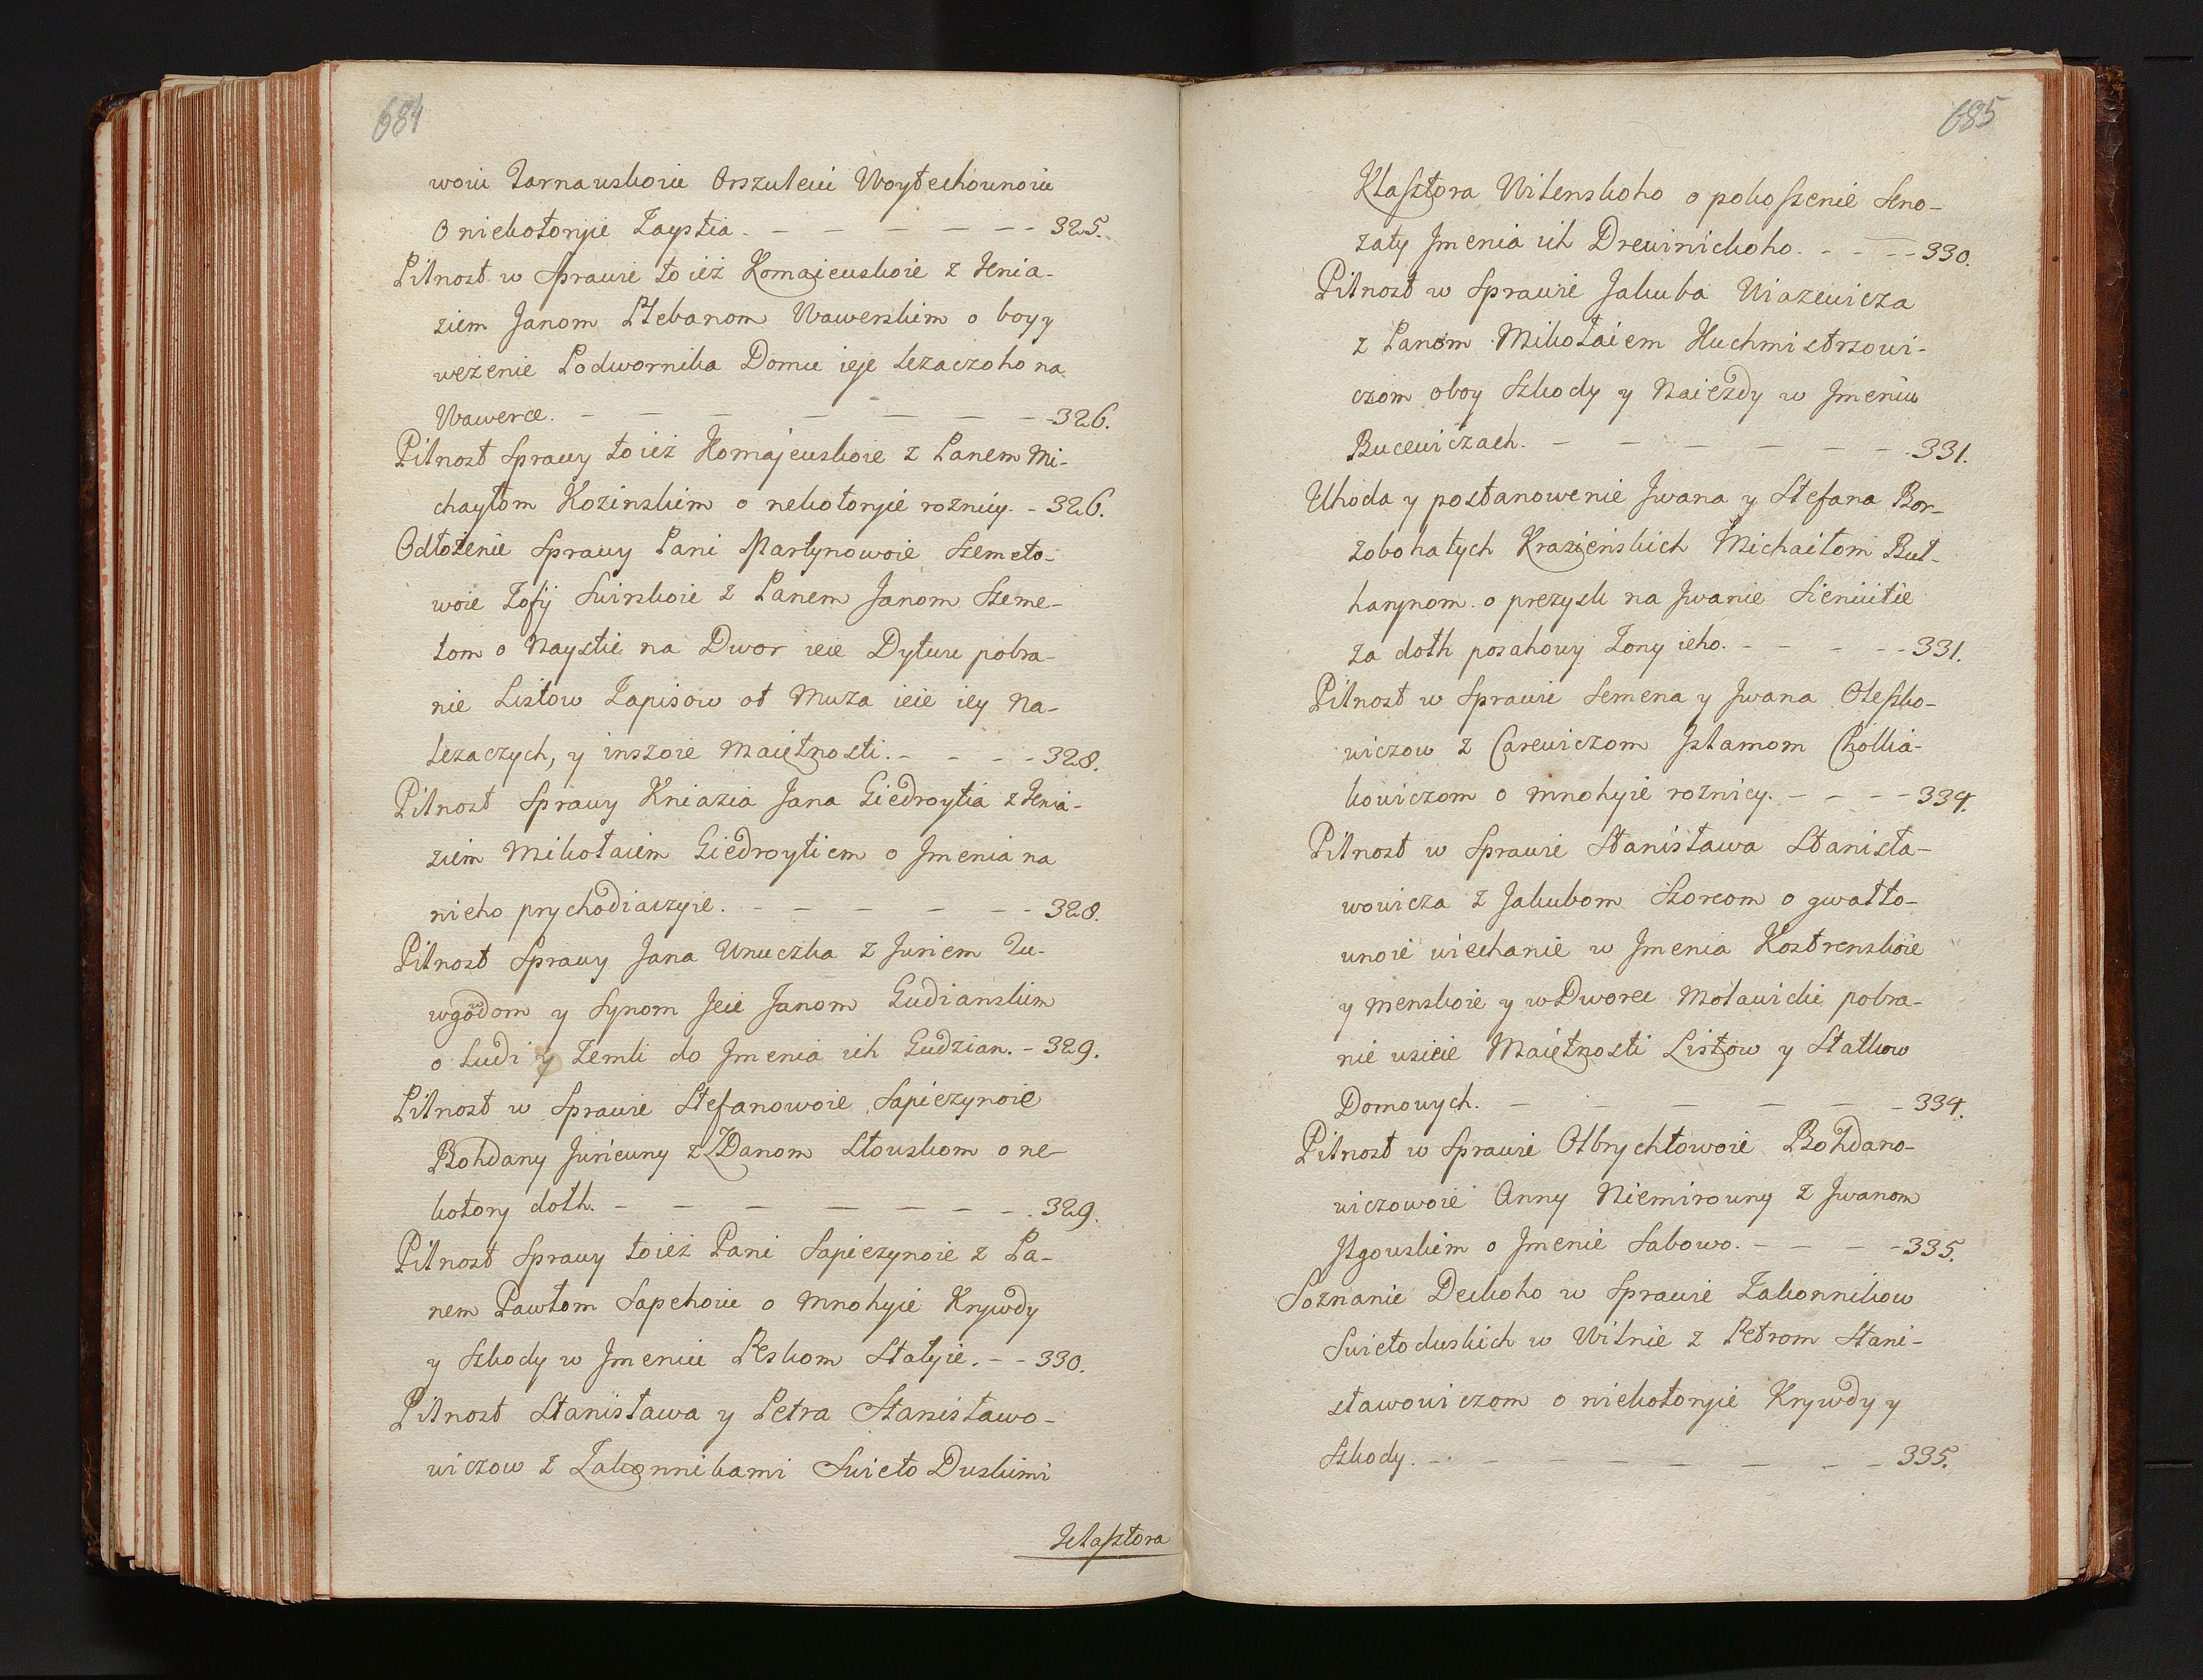 684
woiu Zarnauskoiu Orszuleiu Woytechounoiu
O niekotoryie Zaystia. - - - - - - 325.
Pilnost w Sprawie toież Komaieuskoie z Knia-
ziem Janom Plebanom Wawerskim o boy y
weżenie Podwornika Domu ieje lezaczoho na
Wawerce. - - - - - - - 326.
Pilnost Sprawy toież Komajeuskoie z Panem Mi-
chayłom Kozinskim o nekotoryie roznicy. - 326.
Odłożenie Sprawy Pani Martynowoie Szemeto-
woie Zofij Swirskoie z Panem Janom Szeme-
tom o Naystie na Dwor ieie Dytwu pobra-
nie Listow Zapisow ot Muża ieie iey Na-
lezaczych, y inszoie Maiętnosti. - - - - 328.
Pilnost Sprawy Kniazia Jana Giedroytia z Knia-
ziem Mikołaiem Giedroytiem o Jmenia na
nieho prychodiaczyie. - - - - - - 328.
Pilnost Sprawy Jana Unuczka z Juriem Zu-
wgodom y Synom Jeie Janom Gudianskim
o Ludi y Zemli do Jmenia ich Gudzian. - 329.
Pilnost w Sprawie Stefanowoie Sapiezynoie
Bohdany Juriewny z Zdanom Słouskom o ne-
kotory dolh. - - - - - - - 329.
Pilnost Sprawy toież Pani Sapiezynoie z Pa-
nem Pawłom Sapehoiu o Mnohyie Krywdy
y Szkody w Jmeniu Peskom Stalyie. - - 330.
Pilnost Stanisława y Petra Stanisławo-
wiczow z Zakonnikami Swieto Duskimi
Klasztora
685
Klasztora Wilenskoho o pokoszenie Seno-
zaty Jmenia ich Drewinickoho. - - - - 330.
Pilnost w Sprawie Jakuba Wiazewicza
z Panom Mikołaiem Kuchmistrzowi-
czom oboy Szkody y Naiezdy w Jmeniu
Bucewiczach. - - - - - - 331.
Uhoda y postanowenie Jwana y Stefana Bor-
zobohatych Krasienskich Michaiłom But-
harynom o prezysk na Jwanie Sieniutie
za dolh posahowy Zony ieho. - - - - 331.
Pilnost w Sprawie Semena y Jwana Oleszko-
wiczow z Carewiczom Jslamom Chollia-
kowiczom o mnohyie roznicy. - - - - 334.
Pilnost w Sprawie Stanisława Stanisła-
wowicza z Jakubom Skorcom o gwałto-
wnoie wiechanie w Jmenia Kostrenskoie
y Menskoie y w Dworce Moławicki pobra-
nie wsieie Maiętnosti Listow y Statkow
Domowych. - - - - - - 334.
Pilnost w Sprawie Olbrychtowoie Bohdano-
wiczowoie Anny Niemirowny z Jwanom
Jlgowskim o Jmenie Sabowo. - - - - 335.
Soznanie Deckoho w Sprawie Zakonnikow
Swietoduskich w Wilnie z Petrom Stani-
sławowiczom o niekotoryie Krywdy y
Szkody. - - - - - - - - 335.